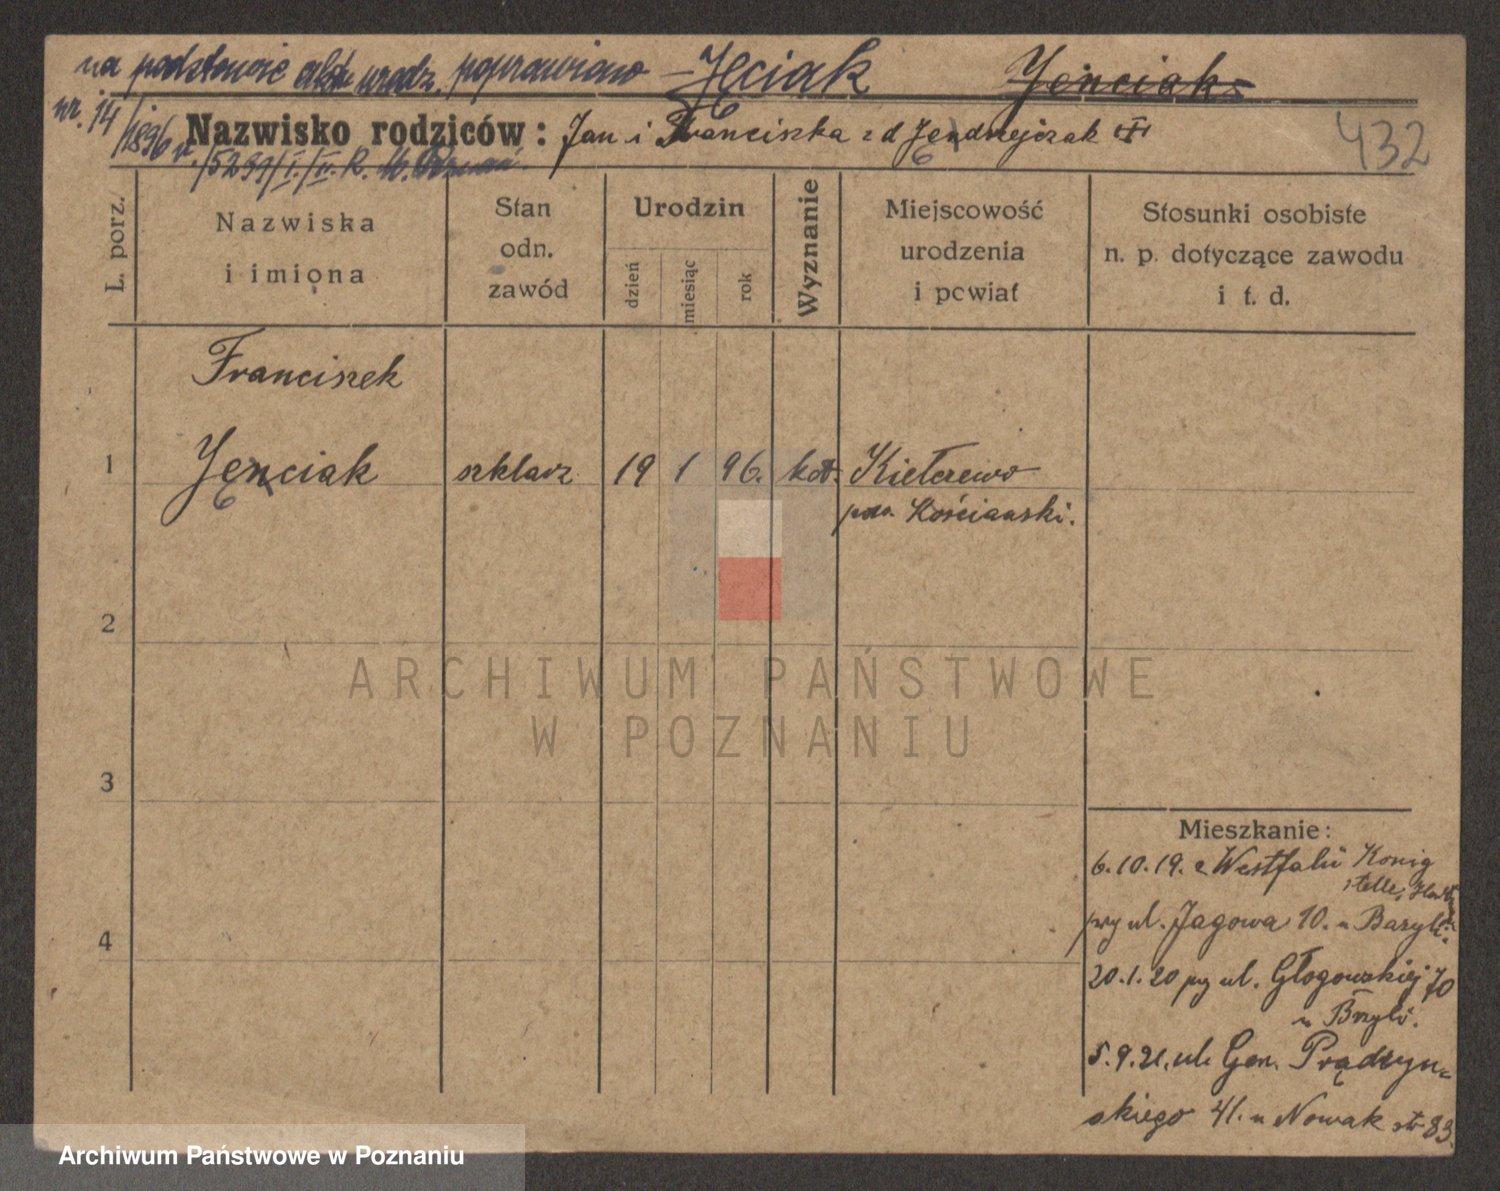 na podstawie aktu urodz. poprawiono – Jęciak Jenciak
nr. 14/1896 r.
Nazwisko rodziców: Jan i Franciszka z d Jendrzejczak
432
/5299/I./II. R. M. Poznań.
L. porz.
Nazwiska
i imiona
Stan
odn.
zawód
Urodzin
dzień
miesiąc
rok
Wyznanie
Miejscowość
urodzenia
i powiat
Stosunki osobiste
n. p. dotyczące zawodu
i t. d.
Franciszek
1 Jenciak szklarz 19 1 96. kat. Kiełczewo
pow. Kościański.
2
3
4
ARCHIWUM PAŃSTWOWE
W POZNANIU
Mieszkanie:
6.10.19. z Westfalii König
stelle,
przy ul. Jagowa 10. u Bazyli.
20.1.20 przy ul. Głogowskiej 70
u Bazyli.
5.9.21. ul. Gen. Prądzyń-
skiego 41. u Nowak str 83.
Archiwum Państwowe w Poznaniu